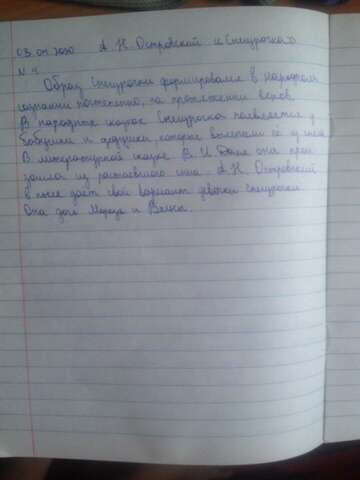 03.04.2020 А. Н. Островский «Снегурочка»
N 1.
Образ Снегурочки формировался в народном
сознании постепенно, на протяжении веков.
В народных сказках Снегурочка появляется у
бабушки и дедушки, которые вылепили её из снега
В литературной сказке В. И. Даля она прои
зошла из растаявшего снега. А. Н. Островский
в пьесе даёт свой вариант девочки Снегурочки
Она дочь Мороза и Весны.